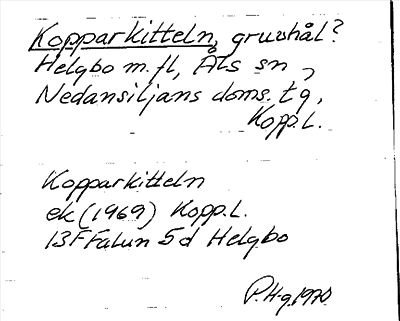 Kopparkitteln, gruvhål?
Helgbo m.fl, Åls sn,
Nedansiljans doms. tg,
Kopp.L.
Kopparkitteln
ek (1969) Kopp.L.
13F Falun 5d Helgbo
P.H-g.1970.